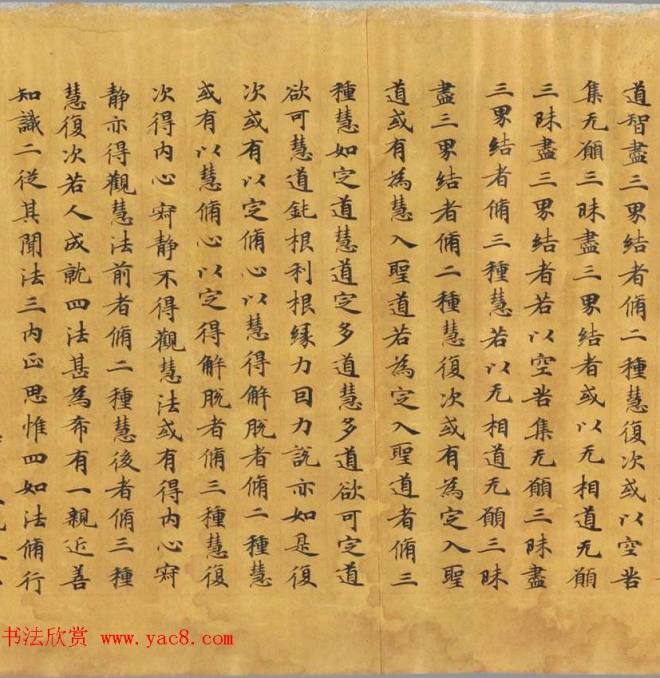 道智盡三界結者脩二種慧復次或以空苦
集无願三昧盡三界結者或以无相道无願
三昧盡三界結者若以空苦集无願三昧盡
三界結者脩三種慧若以无相道无願三昧
盡三界結者脩二種慧復次或有為定入聖
道或有為慧入聖道若為定入聖道者脩三
種慧如定道慧道定多道慧多道欲可定道
欲可慧道鈍根利根緣力因力說亦如是復
次或有以定脩心以慧得解脫者脩二種慧
或有以慧脩心以定得解脫者脩三種慧復
次得內心寂靜不得觀慧法或有得內心寂
靜亦得觀慧法前者脩二種慧後者脩三種
慧復次若人成就四法甚為希有一親近善
知識二從其聞法三內正思惟四如法脩行
书法欣赏 www.yac8.com